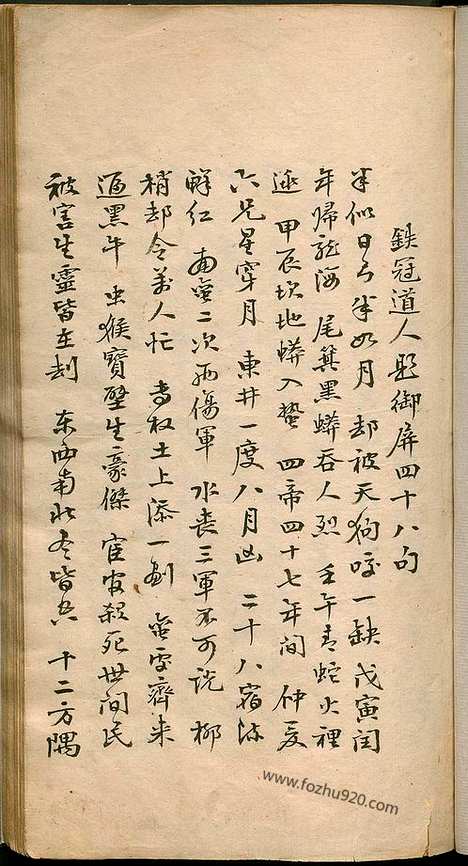 鉄冠道人題御屏四十八句
半似日兮半如月 却被天狗咬一缺 戊寅閏
年帰龍海 尾箕黑蟒吞人烈 壬午青蛇火裡
逃 甲辰坎地蟒入蟄 四帝四十七年間 仲夏
六兄星穿月 東井一度八月凶 二十八宿
鮮红 二次 傷軍 水喪三軍不可説 柳
梢却令萬人忙 专权土上添一劍 齊来
逼黑午 虫猴寶壁生豪傑 宦官殺死世間民
被害生靈皆在刦 东西南北冬皆 十二方隅
www.fozhu920.com